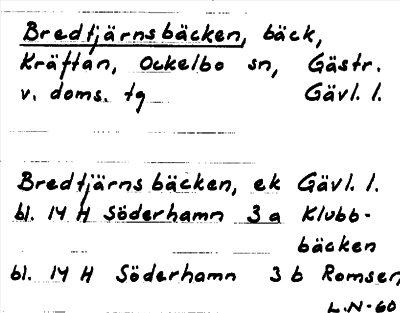 Bredtjärnsbäcken, bäck,
Kräftan, Ockelbo sn, Gästr.
v. doms. tg Gävl. l.
Bredtjärnsbäcken, ek Gävl. l.
bl. 14 H Söderhamn 3 a Klubb-
bäcken
bl. 14 H Söderhamn 3 b Romsen
L.N-60